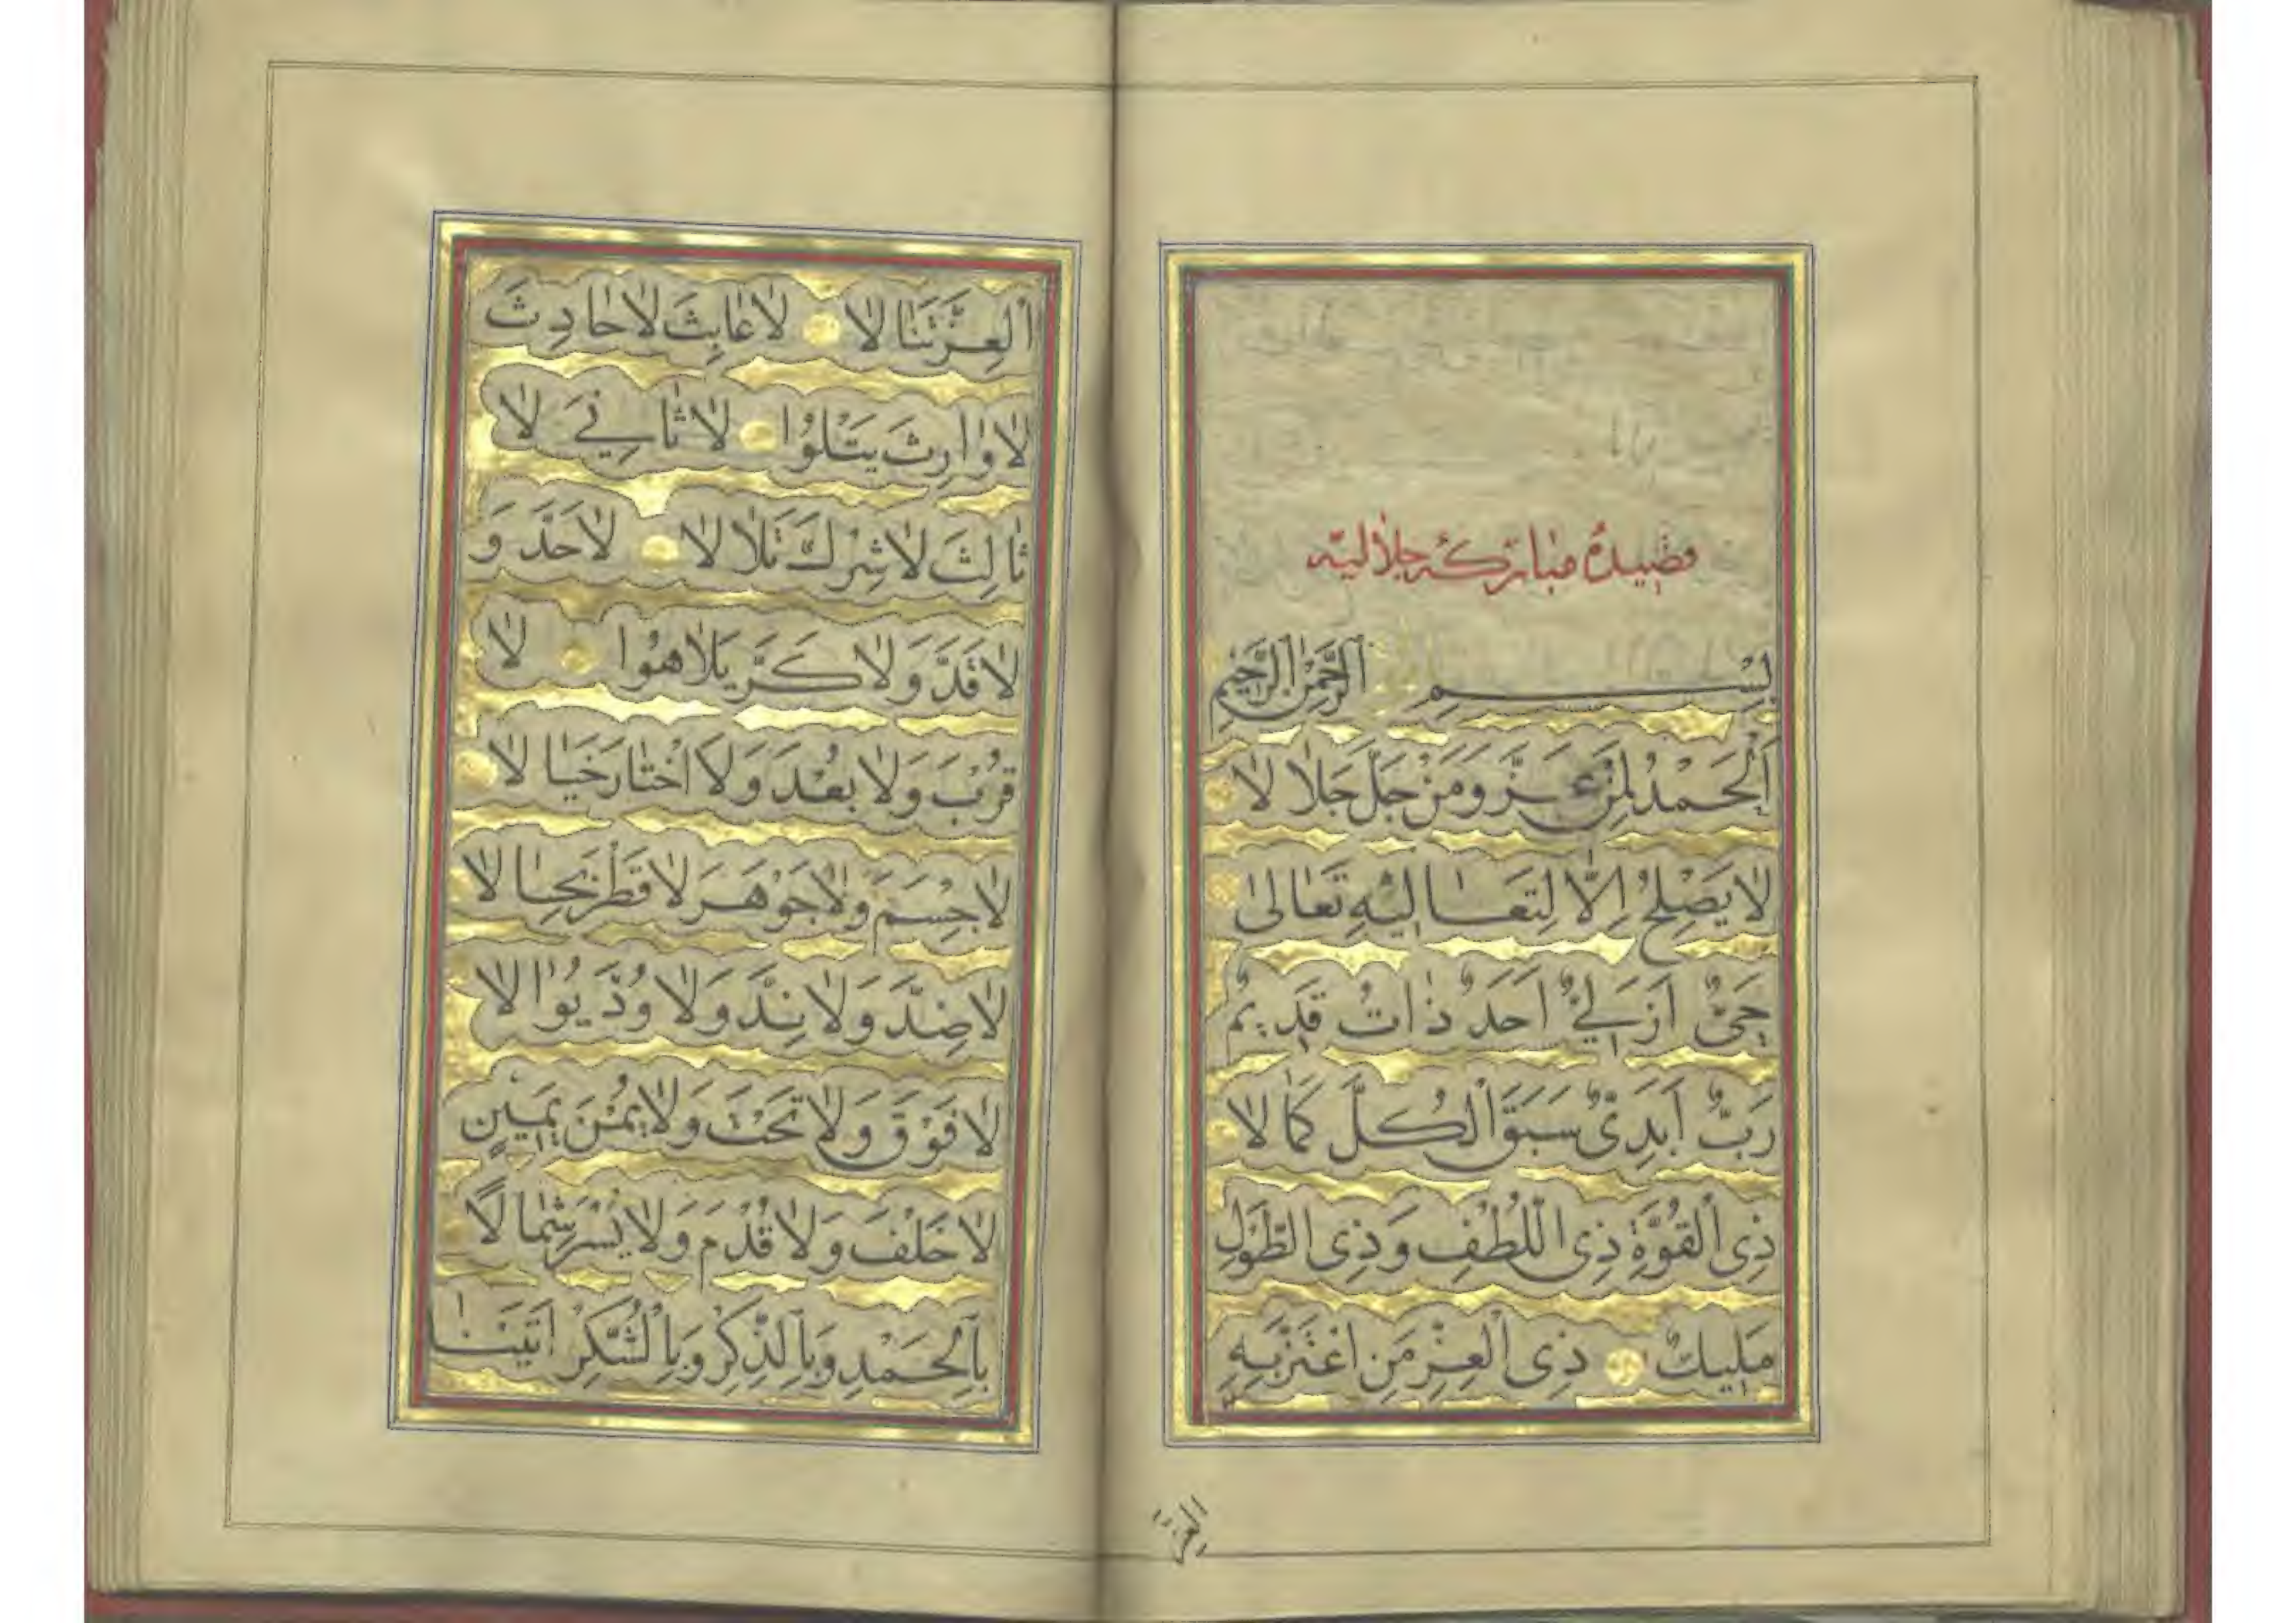 قصيدهٔ مباركهٔ جلاليّه
بِسْمِ الرَّحْمٰنِ الرَّحِيمِ
اَلْحَمْدُ لِمَنْ عَزَّ وَمَنْ جَلَّ جَلَالًا
لَا يَصْلُحُ اِلَّا لِتَعَالِيْهِ تَعَالٰى
حَىٌّ اَزَلِىٌّ اَحَدٌ ذَاتٌ قَدِيمٌ
رَبٌّ اَبَدِىٌّ سَبَقَ الْكُلَّ كَمَالًا
ذِى الْقُوَّةِ ذِى اللُّطْفِ وَذِى الطَّوْلِ
مَلِيكٌ ذِى الْعِزِّ مَنِ اعْتَزَّ بِهِ
العز
الْعِزَّ تَنَالَا لَا عَابِثَ لَا حَادِثَ
لَا وَارِثَ يَتْلُوا لَا ثَانِىَ لَا
ثَالِثَ لَا شِرْكَ تَلَالَا لَا حَدَّ وَ
لَا قَدَّ وَلَا كَرَّ لَا
قُرْبَ وَلَا بُعْدَ وَلَا اخْتَارَ خَيَالَا
لَا جِسْمَ وَلَا جَوْهَرَ لَا قَطْرَ
لَا ضِدَّ وَلَا نِدَّ وَلَا وُدَّ يُوَالَا
لَا فَوْقَ وَلَا تَحْتَ وَلَا يُمْنَ يَمِينٍ
لَا خَلْفَ وَلَا قُدْمَ وَلَا يُسْرَ شِمَالًا
بِالْحَمْدِ وَبِالذِّكْرِ وَبِالشُّكْرِ اَتَيْنَا